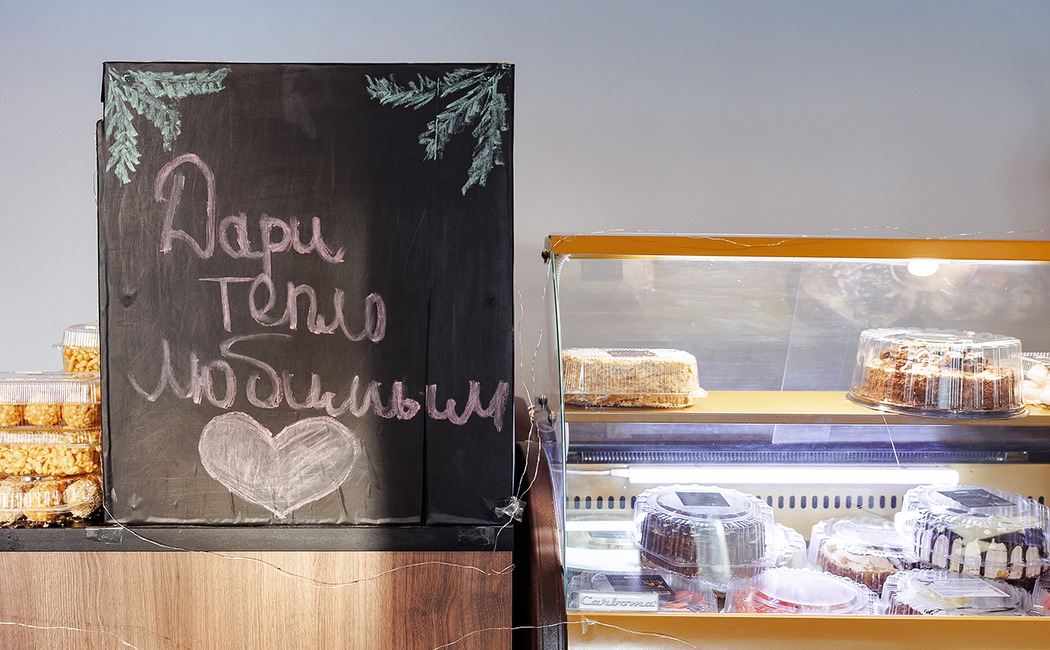 Дари
тепло
любимым
Carboma